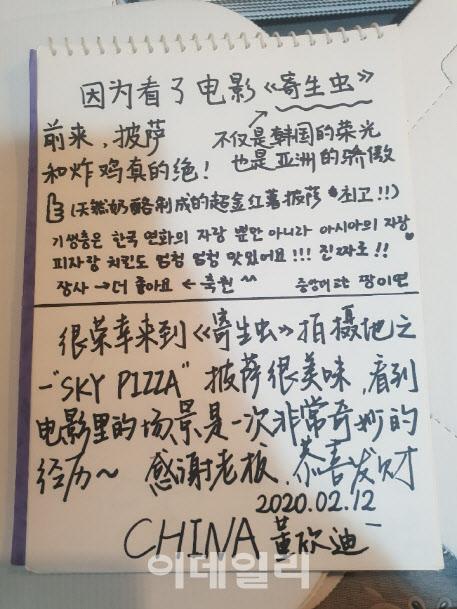 因为看了电影《寄生虫》
前来，披萨
和炸鸡真的绝！
不仅是韩国的荣光
也是亚洲的骄傲
(天然奶酪制成的超金红薯披萨 최고!!)
기생충은 한국 영화의 자랑 뿐만 아니라 아시아의 자랑
피자랑 치킨도 엄청 엄청 맛있어요!!! 진짜로!!
장사 → 더 좋아요 ← 축원 ^^
중앙대
很荣幸来到《寄生虫》拍摄地之
一"SKY PIZZA" 披萨很美味，看到
电影里的场景是一次非常奇妙的
经历~ 感谢老板，恭喜发财
2020.02.12
CHINA 黄欣迪
이데일리